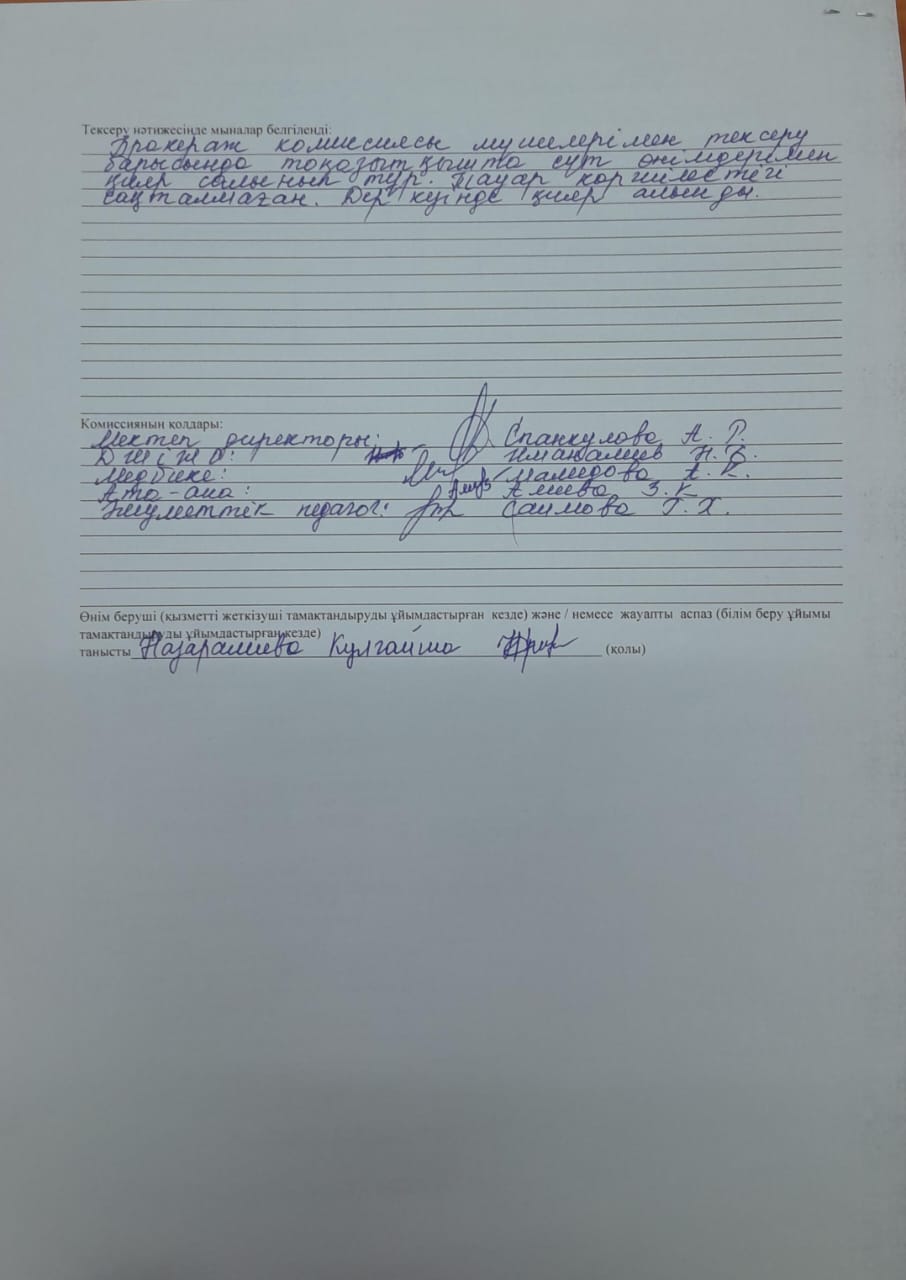 Тексеру нәтижесінде мыналар белгіленді:
Бракераж комиссиясы мүшелерімен тексеру
барысында тоңазытқышта сүт өнімдерімен
қияр салынып тұр. Тауар көршілестігі
сақталмаған. Дер кезінде қияр алынды.
Комиссияның қолдары:
Мектеп директоры: Спанкулова А. Р.
ДШІЖО: Иманалиев Н. Б.
Медбике: Мамедова А. К.
Ата-ана: Алиева З. К
Әлеуметтік педагог: Саимова Г. Х.
Өнім беруші (қызметті жеткізуші тамақтандыруды ұйымдастырған кезде) және / немесе жауапты аспаз (білім беру ұйымы
тамақтандыруды ұйымдастырған кезде)
танысты Назаралиева Кулгайша (қолы)